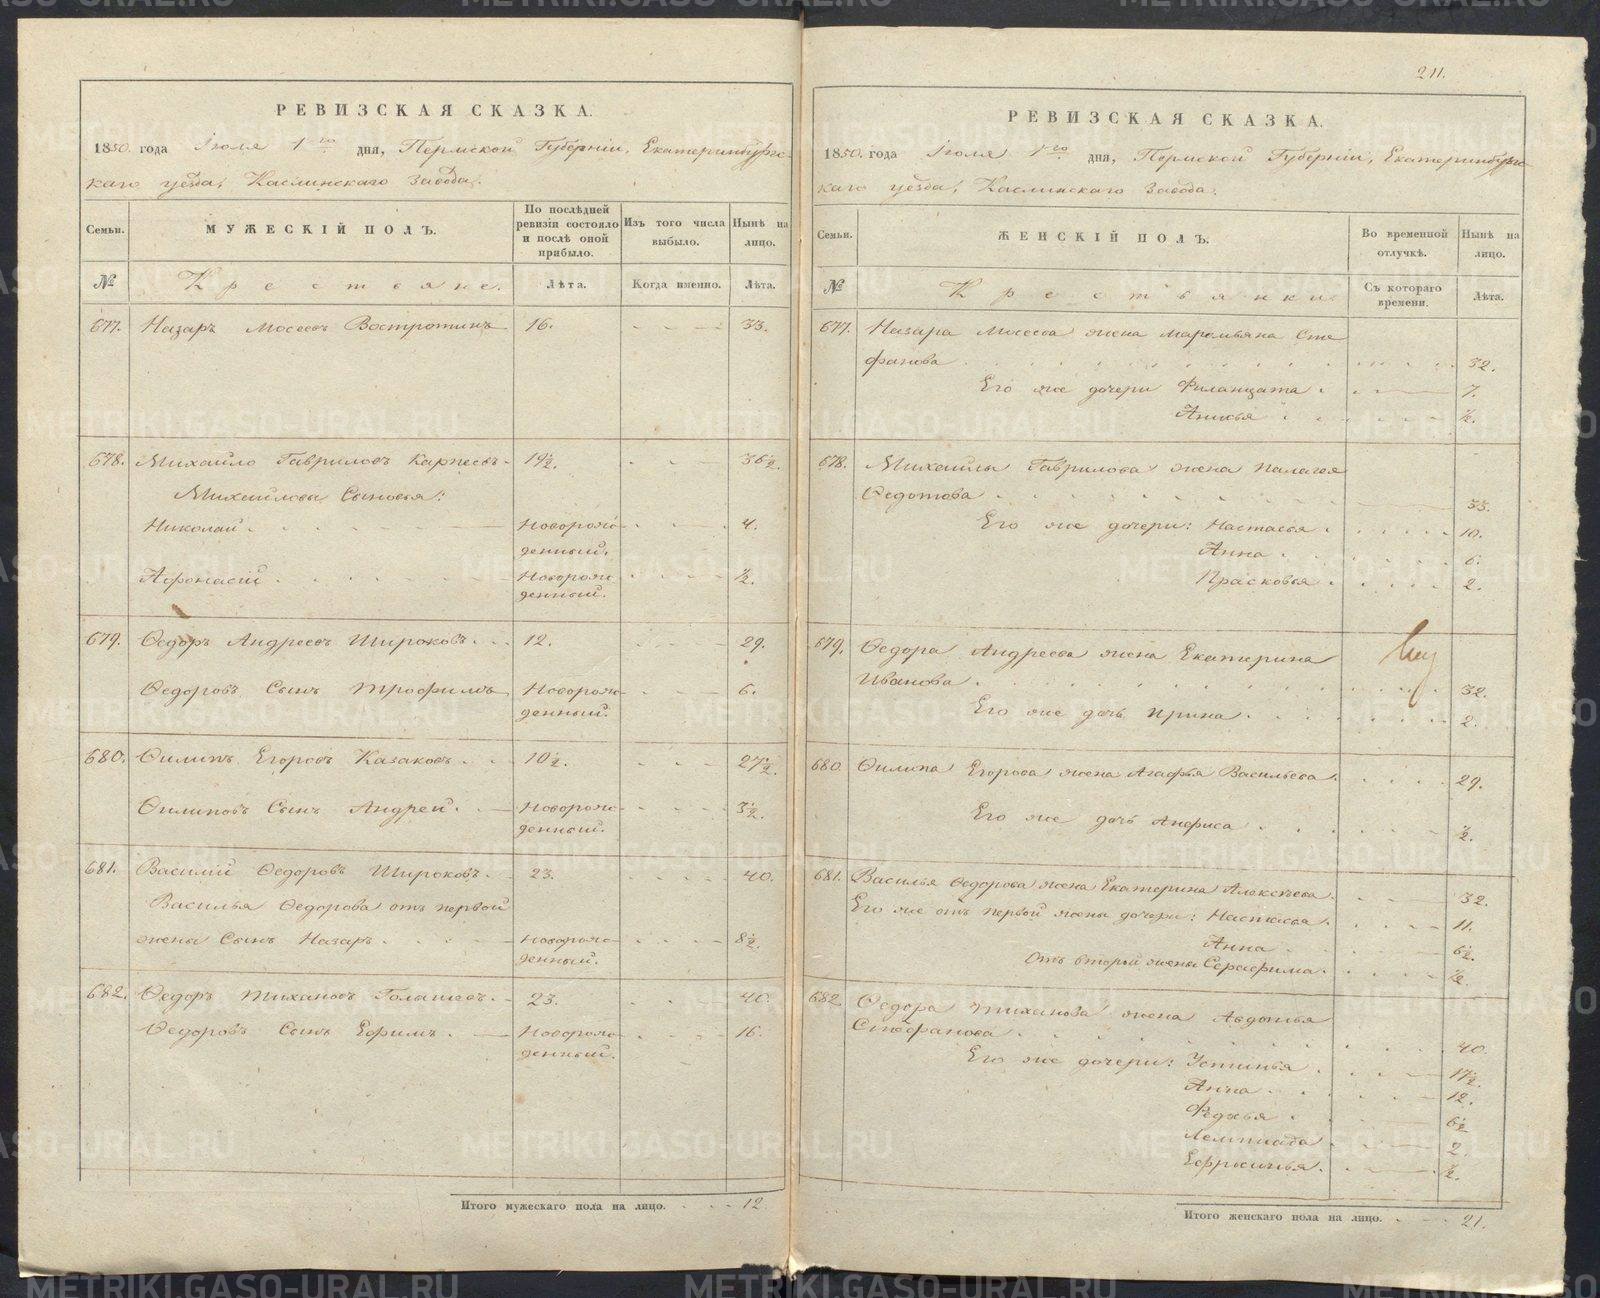 РЕВИЗСКАЯ СКАЗКА.
1850. года Іюля 1го дня, Пермской Губерніи, Екатеринбургс-
каго уѣзда, Каслинскаго Завода.
Семьи. МУЖЕСКІЙ ПОЛЪ. По послѣдней ревизіи состояло и послѣ оной прибыло. Изъ того числа выбыло. Нынѣ на лицо.
№ Крестьяне. Лѣта. Когда именно. Лѣта.
677. Назаръ Мосеевъ Востротинъ 16. 33.
678. Михайло Гавриловъ Карпеевъ 19½. 36½.
Михайловы Сыновья:
Николай Новорож- 4.
денный.
Афонасій Новорож- ½.
денный.
679. Ѳедоръ Андреевъ Широковъ 12. 29.
Ѳедоровъ Сынъ Трофимъ Новорож- 6.
денный.
680. Ѳилипъ Егоровъ Казаковъ 10½. 27½.
Ѳилиповъ Сынъ Андрей Новорож- 3½.
денный.
681. Василій Ѳедоровъ Широковъ 23. 40.
Василья Ѳедорова отъ первой
жены Сынъ Назаръ Новорож- 8½.
денный.
682. Ѳедоръ Тихановъ Голышевъ 23. 40.
Ѳедоровъ Сынъ Ефимъ Новорож- 16.
денный.
Итого мужескаго пола на лицо. 12
211.
РЕВИЗСКАЯ СКАЗКА.
1850. года Іюля 1го дня, Пермской Губерніи, Екатеринбургс-
каго уѣзда, Каслинскаго Завода.
Семьи. ЖЕНСКІЙ ПОЛЪ. Во временной отлучкѣ. Нынѣ на лицо.
№ Крестьянки. Съ котораго времени. Лѣта.
677. Назара Мосеева жена Маремьяна Сте
фанова 32.
Его же дочери Филанцата 7.
Анисья ½.
678. Михайлы Гаврилова жена Палагея
Ѳедотова 33.
Его же дочери: Настасья 10.
Анна 6.
Прасковья 2.
679. Ѳедора Андреева жена Екатерина
Иванова 32.
Его же дочь Ирина 2.
680 Ѳилипа Егорова жена Агафья Васильева 29.
Его же дочь Анфиса ½.
681. Василья Ѳедорова жена Екатерина Алексѣева 32.
Его же отъ первой жены дочери: Настасья 11.
Анна 6½.
отъ второй жены Серафима ½.
682 Ѳедора Тиханова жена Авдотья
Стефанова 40.
Его же дочери: Устинья 17½.
Анна 12.
Федосья 6½
2.
Ефросинья ½.
Итого женскаго пола на лицо. 21.
METRIKI.GASO-URAL.RU